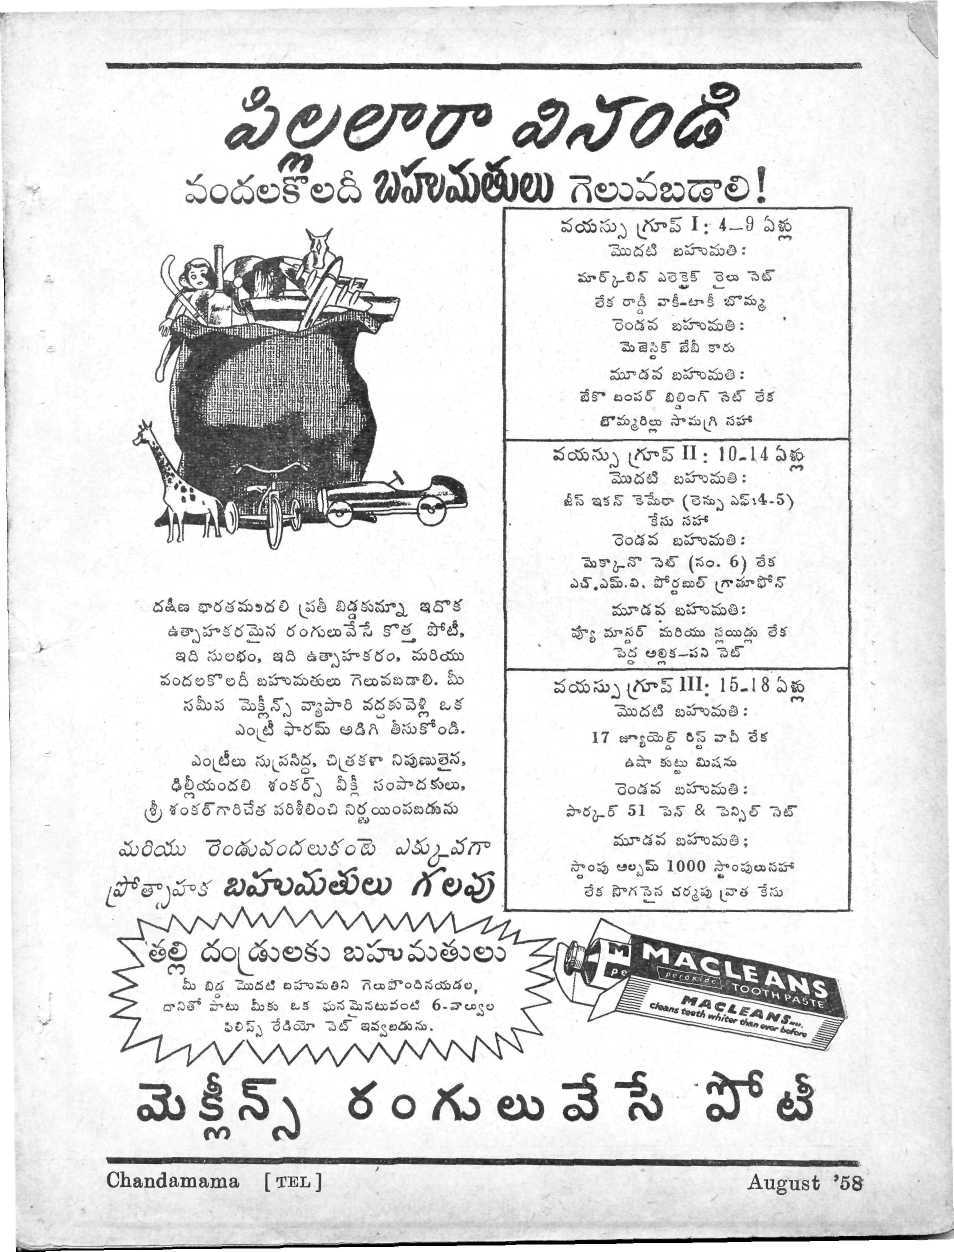 పిల్లలారా వినండి
వందలకొలదీ బహుమతులు గెలువబడాలి!
వయస్సు గ్రూప్ I: 4–9 ఏళ్లు
మొదటి బహుమతి:
మార్క్లిన్ ఎలెక్ట్రిక్ రైలు సెట్
లేక రాడ్డీ వాకీ-టాకీ బొమ్మ
రెండవ బహుమతి:
మెజెస్టిక్ బేబీ కారు
మూడవ బహుమతి:
బేకొ బంపర్ బిల్డింగ్ సెట్ లేక
బొమ్మరిల్లు సామగ్రి సహా
వయస్సు గ్రూప్ II: 10-14 ఏళ్లు
మొదటి బహుమతి:
జీస్ ఇకన్ కెమేరా (లెన్సు ఎఫ్:4-5)
కేసు సహా
రెండవ బహుమతి:
మెక్కానొ సెట్ (నం. 6) లేక
ఎచ్.ఎమ్.వి. పోర్టబుల్ గ్రామాఫోన్
మూడవ బహుమతి:
వ్యూ మాస్టర్ మరియు స్లయిడ్లు లేక
పెద్ద అల్లిక–పని సెట్
వయస్సు గ్రూప్ III: 15-18 ఏళ్లు
మొదటి బహుమతి:
17 జ్యూయెల్డ్ రిస్ట్ వాచీ లేక
ఉషా కుట్టు మిషను
రెండవ బహుమతి:
పార్కర్ 51 పెన్ & పెన్సిల్ సెట్
మూడవ బహుమతి;
స్టాంపు ఆల్బమ్ 1000 స్టాంపులుసహా
లేక సొగసైన చర్మపు వ్రాత కేసు
దక్షిణ భారతమందలి ప్రతీ బిడ్డకున్నూ ఇదొక
ఉత్సాహకరమైన రంగులువేసే కొత్త పోటీ,
ఇది సులభం, ఇది ఉత్సాహకరం, మరియు
వందలకొలదీ బహుమతులు గెలువబడాలి. మీ
సమీప మెక్లీన్స్ వ్యాపారి వద్దకువెళ్లి ఒక
ఎంట్రీ ఫారమ్ అడిగి తీసుకోండి.
ఎంట్రీలు సుప్రసిద్ధ, చిత్రకళా నిపుణులైన,
ఢిల్లీయందలి శంకర్స్ వీక్లీ సంపాదకులు,
శ్రీ శంకర్‌గారిచేత పరిశీలించి నిర్ణయింపబడును
మరియు రెండువందలుకంటె ఎక్కువగా
ప్రోత్సాహక బహుమతులు గలవు
తల్లి దండ్రులకు బహుమతులు
మీ బిడ్డ మొదటి బహుమతిని గెలుపొందినయడల,
దానితో పాటు మీకు ఒక ఘనమైనటువంటి 6-వాల్వుల
ఫిలిప్స్ రేడియో సెట్ ఇవ్వబడును.
MACLEANS
peroxide
TOOTH PASTE
MACLEANS
cleans teeth whiter than ever before
మెక్లీన్స్ రంగులువేసే పోటీ
Chandamama [TEL]
August '58